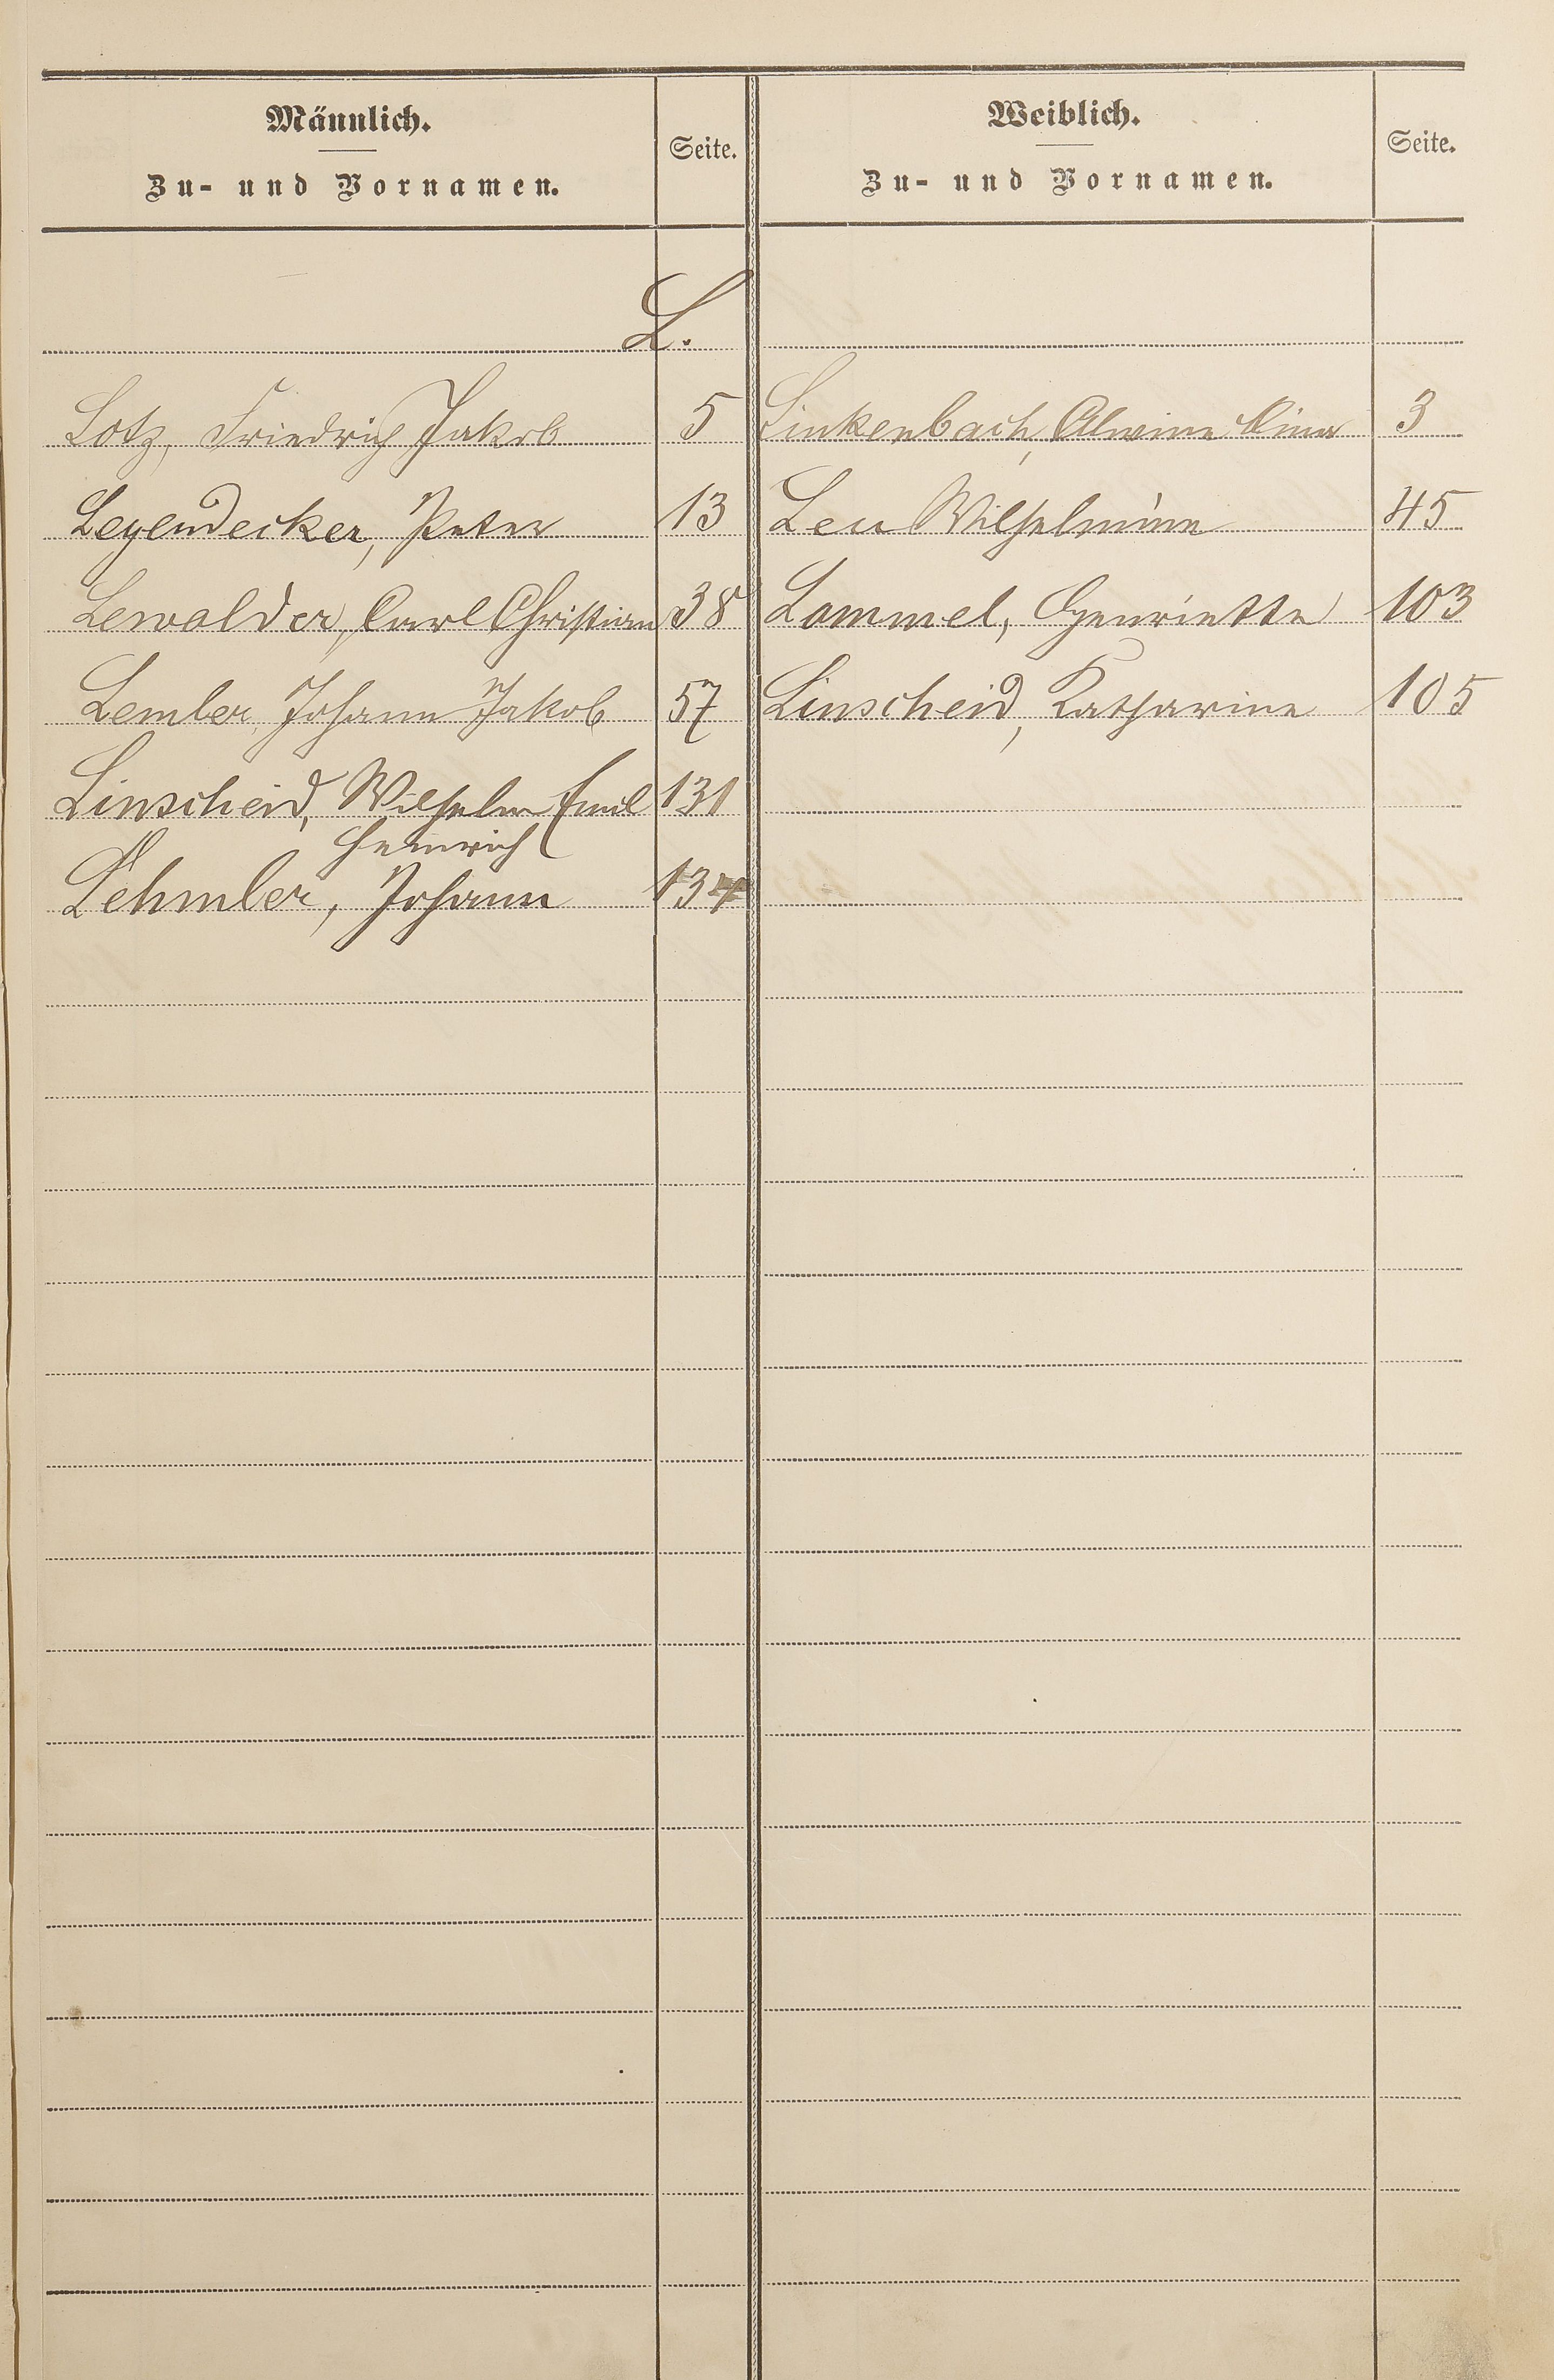 Männlich.
Zu- und Vornamen.
Seite.
Weiblich.
Zu- und Vornamen.
Seite.
L.
Lotz, Friedrich Jakob 5
Leyendecker, Peter 13
Lewalder, Carl Christian 38
Lembler, Johann Jakob 57
Linscheid, Wilhelm Emil 131
Heinrich
Lehmler, Johann 134
Linkenbach, Alwine Lina 3
Leu Wilhelmine 45
Lommel, Henriette 103
Linscheid, Katharine 105